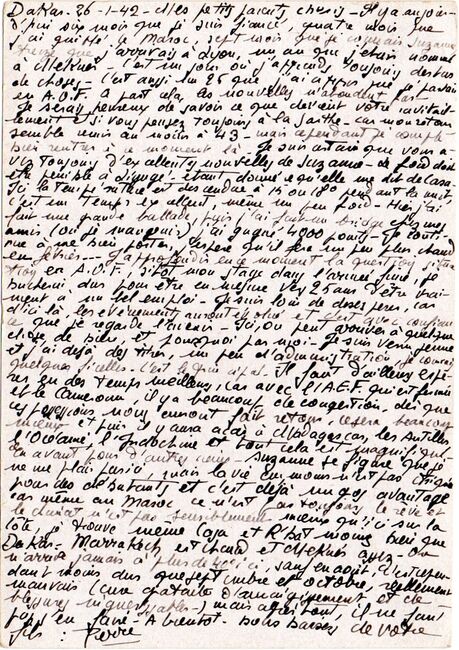 Dakar. 26-1-42 - Mes petits parents chéris - Il y a aujour-
d'hui six mois que je suis fiancé, quatre mois que
j'ai quitté le Maroc, sept mois que je connais Suzanne
que j'arrivais à Lyon, un an que j'étais nommé
à Meknès. C'est un jour où j'apprends toujours des tas
de choses. C'est aussi le 25 que j'ai appris que je partais
en A.O.F. A part cela, les nouvelles n'abondent pas.
Je serais heureux de savoir ce que devient votre ravitail-
lement et si vous pensez toujours à la Sarthe - car mon retour
semble remis au moins à 43, mais cependant je compte
bien rentrer à ce moment là. Je suis ravi que vous a-
vez toujours d'excellentes nouvelles de Suzanne - Le froid doit
être pénible à étant donné qu'elle me dit de Casa-
Ici la température est descendue à 15 ou 18° pendant la nuit
c'est un temps excellent, même un peu froid - Hier, j'ai
fait une grande ballade, puis j'ai fait un bridge chez mes
amis (où je mangeais) j'ai gagné 4000 points - Je conti-
nue à me bien porter, j'espère qu'il fera un peu plus chaud
en février - J'approfondis en ce moment la question
en A.O.F. Sitôt mon stage dans l'armée fini, je
bûcherai dur pour être en mesure vers 25 ans d'être vrai-
ment à un bel emploi - Je suis loin de désespérer, car
d'ici là, les événements auront évolué et c'est avec confiance
que je regarde l'avenir - Ici, on peut arriver à quelque
chose de bien, et pourquoi pas moi - Je suis venu jeune
et j'ai déjà des titres, un peu d'administration, je connais
quelques ficelles, c'est le principal. Il faut d'ailleurs espé-
rer en des temps meilleurs, car avec l'A.E.F. qui est fermée
et le Cameroun, il y a beaucoup de congestion, dès que
ces possessions nous auront fait retour, ce sera beaucoup
mieux et puis il y aura aussi Madagascar, les Antilles
l'Océanie, l'Indochine et tout cela est magnifique.
En avant pour d'autres cieux - Suzanne se figure que je
ne me plais pas ici, mais la vie au moins n'est pas
pour des débutants et c'est déjà un gros avantage
car même au Maroc ce n'est pas toujours le rêve et
le climat n'est pas sensiblement mieux qu'ici sur la
côte, je trouve même Casa et Rabat moins bien que
Dakar - Marrakech est chaud et Meknès aussi - On
n'arrive jamais à plus de 40° ici, sauf en août, c'est cepen-
dant moins dur que septembre et octobre, réellement
mauvais (cure gratuite d'amaigrissement et de
) mais après tout, il ne faut
pas s'en faire - A bientôt - Bons baisers de votre
fils : Pierre